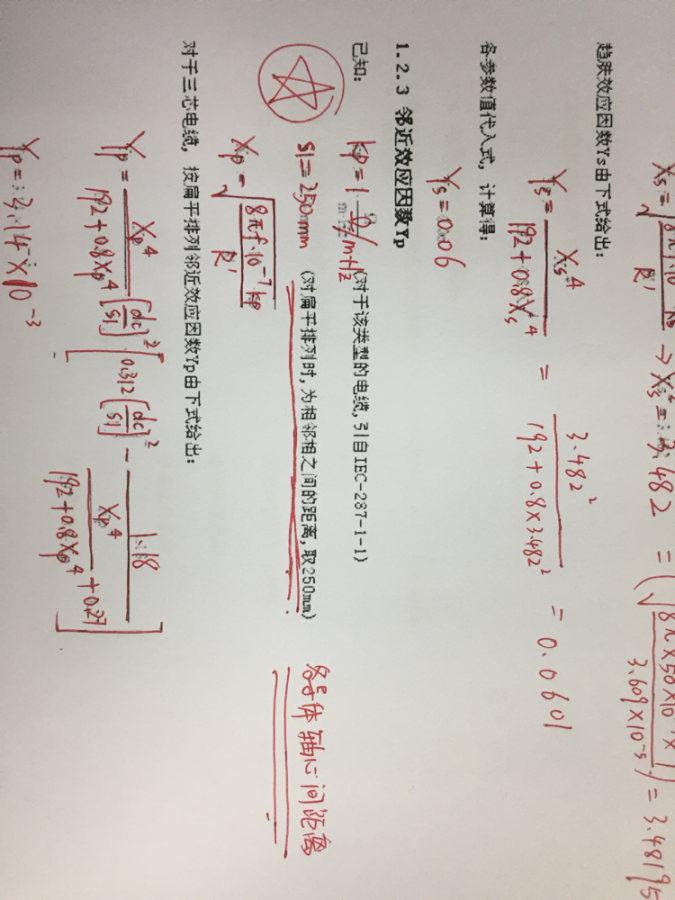 Xs = √(8πf·10⁻⁷ks / R') → Xs² = 3.482 = (√(8π×50×10⁻⁷×1 / 3.609×10⁻⁵))² = 3.48195
趋肤效应因数Ys由下式给出:
Ys = Xs⁴ / (192+0.8Xs⁴) = 3.482² / (192+0.8×3.482²) = 0.0601
各参数值代入式, 计算得:
Ys = 0.06
1.2.3 邻近效应因数Yp
已知:
kp = 1 (对于该类型的电缆, 引自IEC-287-1-1)
S1 = 250mm (对扁平排列时, 为相邻相之间的距离, 取250mm)
各导体轴心间距离
Xp = √(8πf·10⁻⁷kp / R')
对于三芯电缆, 按扁平排列邻近效应因数Yp由下式给出:
Yp = Xp⁴ / (192+0.8Xp⁴) [dc/S1]² [0.312[dc/S1]² + 1.18 / (Xp⁴ / (192+0.8Xp⁴) + 0.27)]
Yp = 3.14×10⁻³